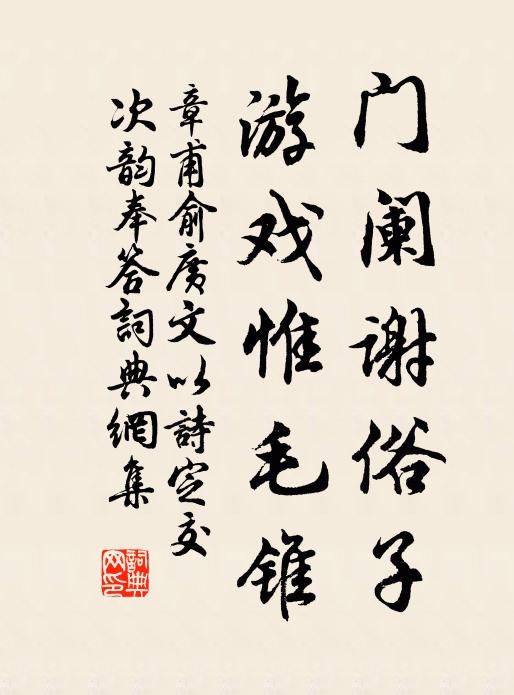 门阑谢俗子
游戏惟毛锥
章甫俞廣文以詩定交
次韵奉答詞典網集
詞典网印